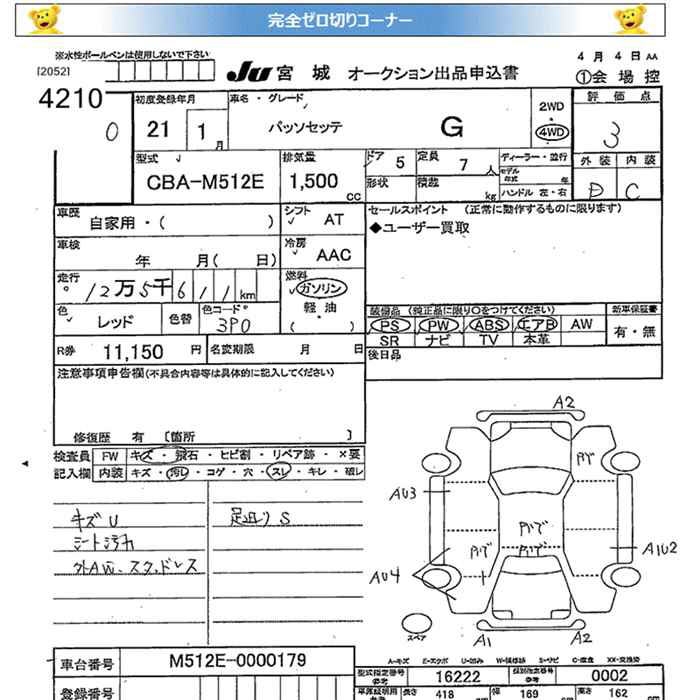 完全ゼロ切りコーナー
※水性ボールペンは使用しないで下さい
[2052]
JU 宮 城 オークション出品申込書
4 月 4 日 AA
①会 場 控
4210
0
初度登録年月
21 1 月
車名・グレード
パッソセッテ G
2WD
4WD
評 価 点
3
外 装 内 装
D C
型式
CBA-M512E
排気量
1,500 cc
ドア 5
定員 7 人
形状
積載 kg
ディーラー・並行
モデル年式 年
ハンドル 左・右
車歴
自家用・( )
シフト
AT
セールスポイント (正常に動作するものに限ります)
◆ユーザー買取
車検
年 月( 日)
冷房
AAC
走行
12万5千611 km
燃料
ガソリン
軽 油
( )
色
レッド
色替
色コード
3P0
装備品 (純正品に限り○をつけてください)
PS PW ABS エアB AW
SR ナビ TV 本革
新車保証書
有・無
R券 11,150 円
名変期限 月 日
後日品
注意事項申告欄(不具合内容等は具体的に記入してください)
修復歴 有 [箇所 ]
検査員 FW キズ・飛石・ヒビ割・リペア跡・×要
記入欄 内装 キズ・汚レ・コゲ・穴・スレ・キレ・破レ
キズU
シート汚れ
外AW、スタッドレス
足廻りS
A2
AU3
AU4
A1U2
A1
A2
スペア
A-キズ E-エクボ U-凹み W-補修跡 S-サビ C-腐食 XX-交換済
車台番号 M512E-0000179
型式指定番号
参考
16222
類別指定番号
参考
0002
登録番号
長さ 418
幅 169
高さ 162